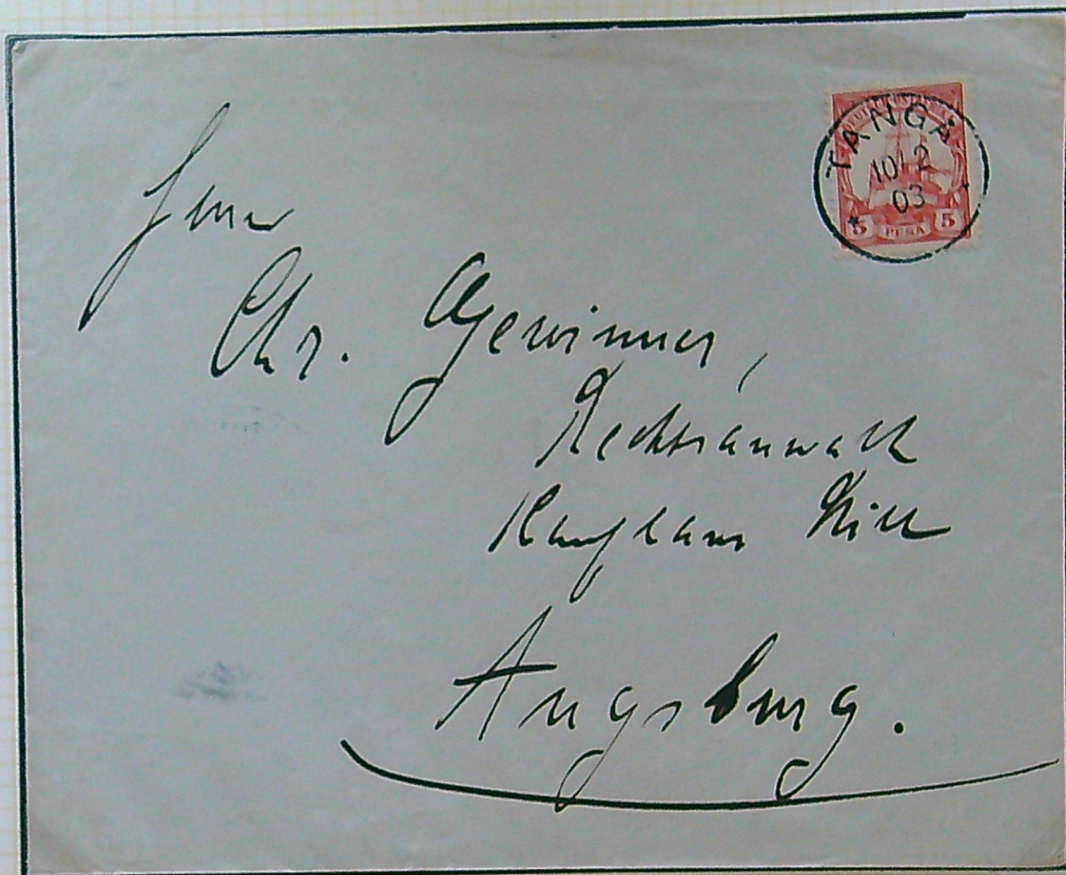 TANGA
10/2
03
5 PESA 5
Herrn
Chr. Gewinner,
Rechtsanwalt
Kaufhaus
Augsburg.